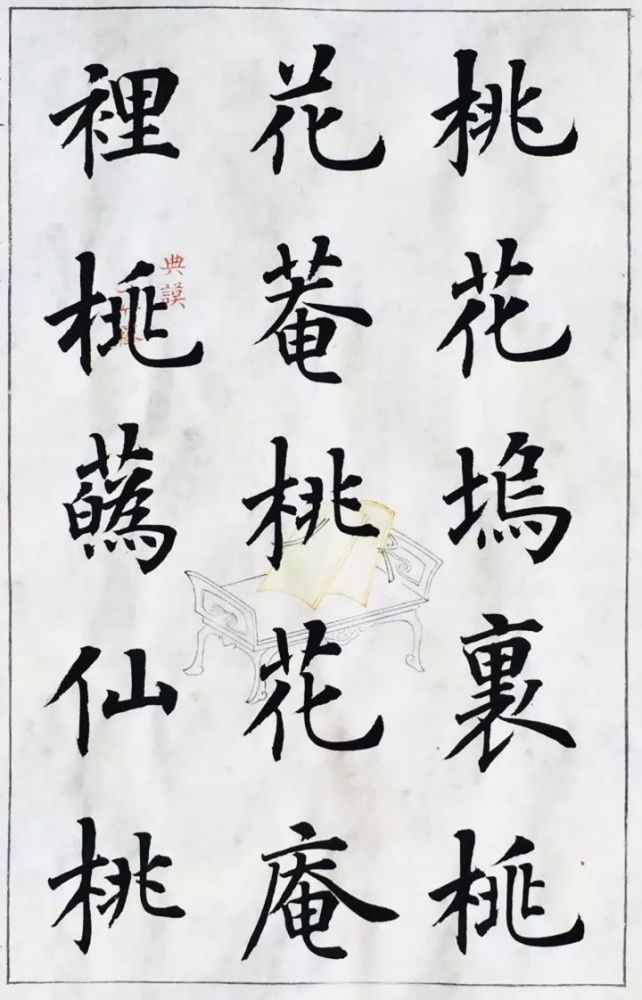 桃花塢裏桃
花菴桃花庵
裡桃蘤仙桃
典謨